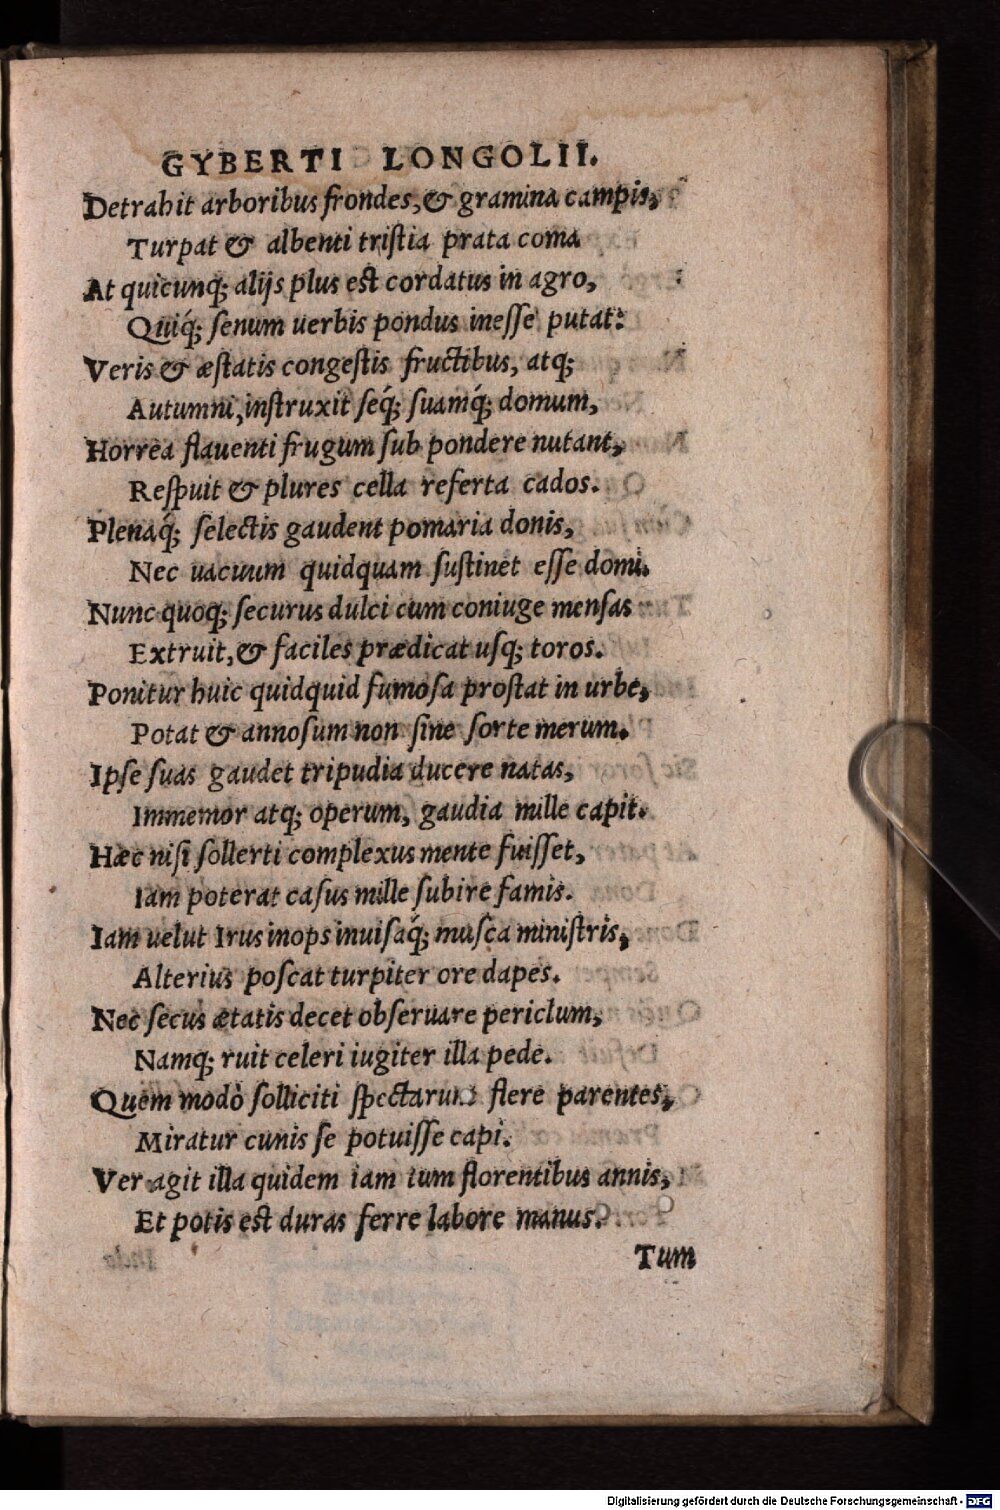 GYBERTI LONGOLII.
Detrahit arboribus frondes, & gramina campis,
Turpat & albenti tristia prata coma
At quicunq; alijs plus est cordatus in agro,
Quiq́; senum uerbis pondus inesse putat:
Veris & æstatis congestis fructibus, atq;
Autumni, instruxit seq́; suamq́; domum,
Horrea flauenti frugum sub pondere nutant,
Respuit & plures cella referta cados.
Plenaq́; selectis gaudent pomaria donis,
Nec uacuum quidquam sustinet esse domi.
Nunc quoq; securus dulci cum coniuge mensas
Extruit, & faciles prædicat usq; toros.
Ponitur huic quidquid fumosa prostat in urbe,
Potat & annosum non sine sorte merum.
Ipse suas gaudet tripudia ducere natas,
Immemor atq; operum, gaudia mille capit.
Hæc nisi sollerti complexus mente fuisset,
Iam poterat casus mille subire famis.
Iam uelut Irus inops inuisaq́; musca ministris,
Alterius poscat turpiter ore dapes.
Nec secus ætatis decet obseruare periclum,
Namq; ruit celeri iugiter illa pede.
Quem modò solliciti spectarunt flere parentes,
Miratur cunis se potuisse capi.
Ver agit illa quidem iam tum florentibus annis,
Et potis est duras ferre labore manus.
Tum
Digitalisierung gefördert durch die Deutsche Forschungsgemeinschaft - DFG